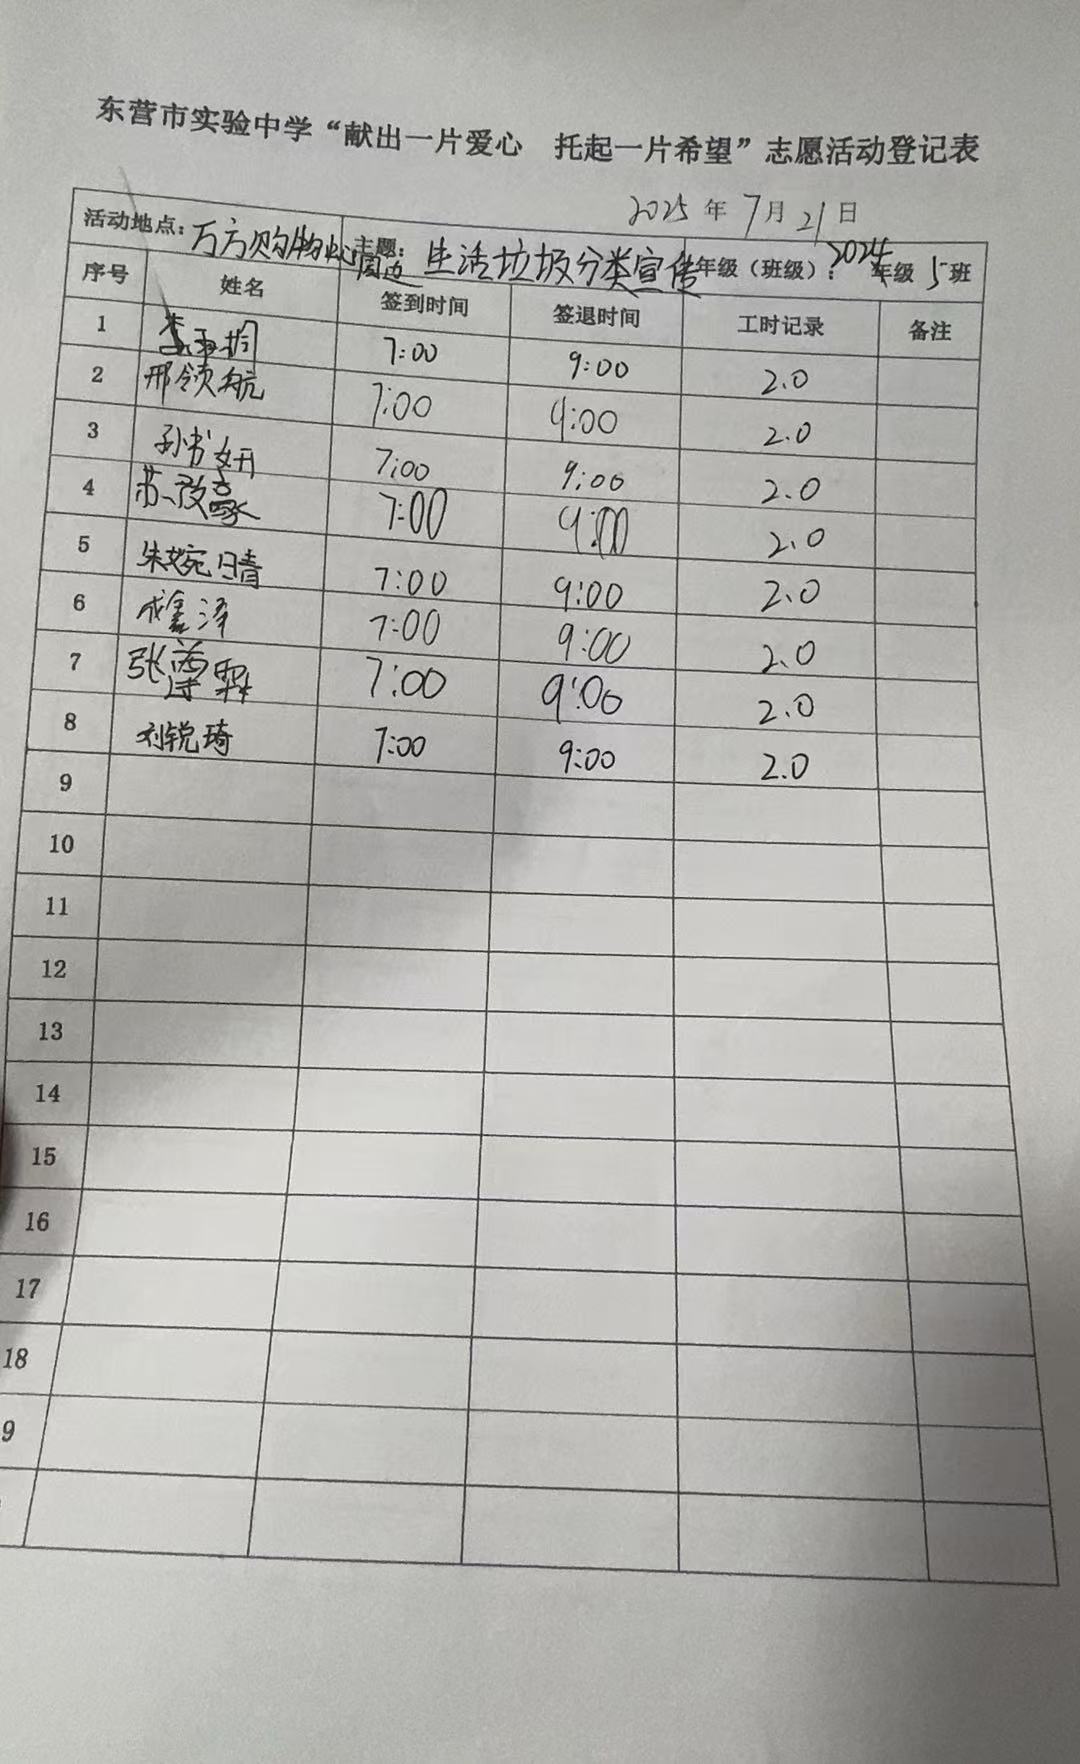 东营市实验中学“献出一片爱心 托起一片希望”志愿活动登记表
2025年7月21日
活动地点：万方购物中心周边 主题：生活垃圾分类宣传 年级（班级）：2024年级5班
序号 姓名 签到时间 签退时间 工时记录 备注
1 李 7:00 9:00 2.0
2 邢领航 7:00 9:00 2.0
3 孙书妍 7:00 9:00 2.0
4 苏 豪 7:00 9:00 2.0
5 朱婉晴 7:00 9:00 2.0
6 成鑫泽 7:00 9:00 2.0
7 张 7:00 9:00 2.0
8 刘锐琦 7:00 9:00 2.0
9
10
11
12
13
14
15
16
17
18
9